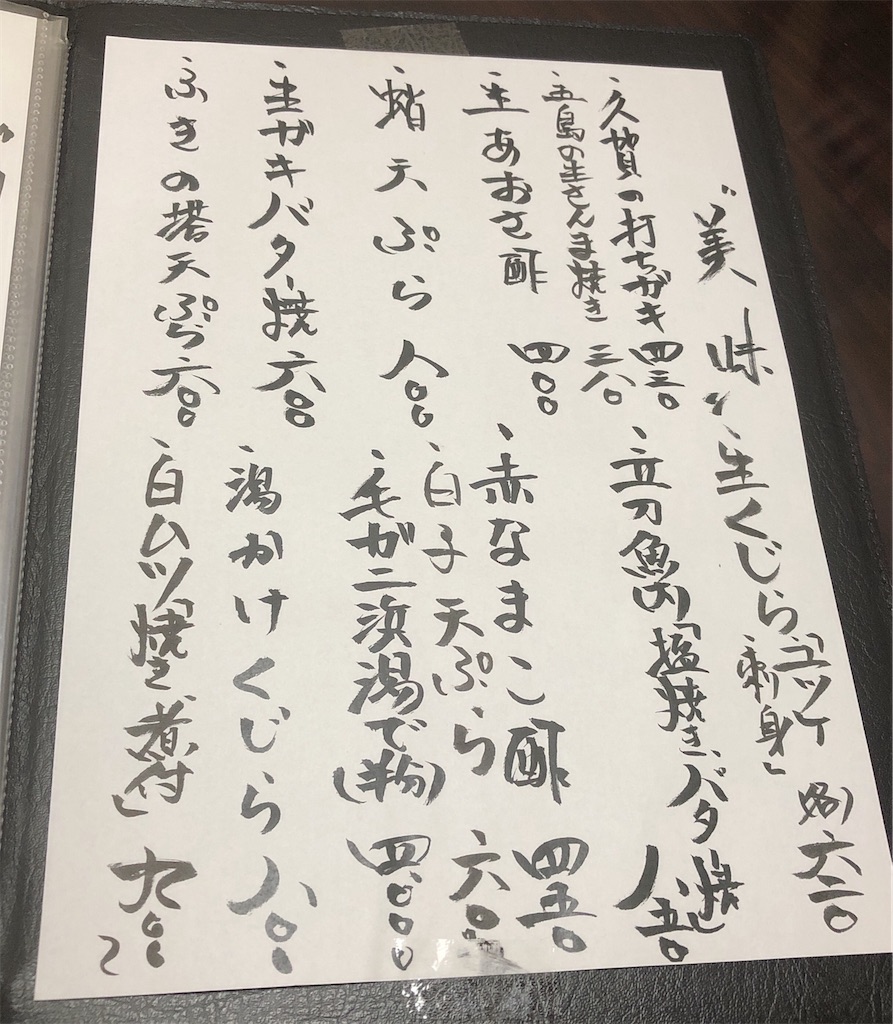 美味
、生くじら「ユッケ
刺身」
各六二〇
、久賀の打ちガキ 四三〇
、五島の生さんま焼き 三八〇
、生あおさ酢 四〇〇
、蛸天ぷら 八〇〇
、生ガキバター焼 六〇〇
、ふきの塔天ぷら 六〇〇
、立刀魚「塩焼き、バター焼」 八五〇
、赤なまこ酢 四五〇
、白子天ぷら 六〇〇
、毛ガニ浜湯で(半物) 四、〇〇〇
、湯かけくじら 八〇〇
、白ムツ「焼き、煮付」 九〇〇